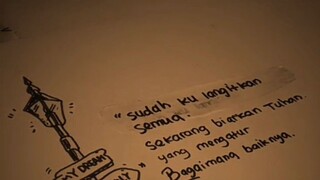 "sudah ku langitkan
semua!
sekarang biarkan Tuhan
yang mengatur
Bagaimana baiknya.
MY DREAM